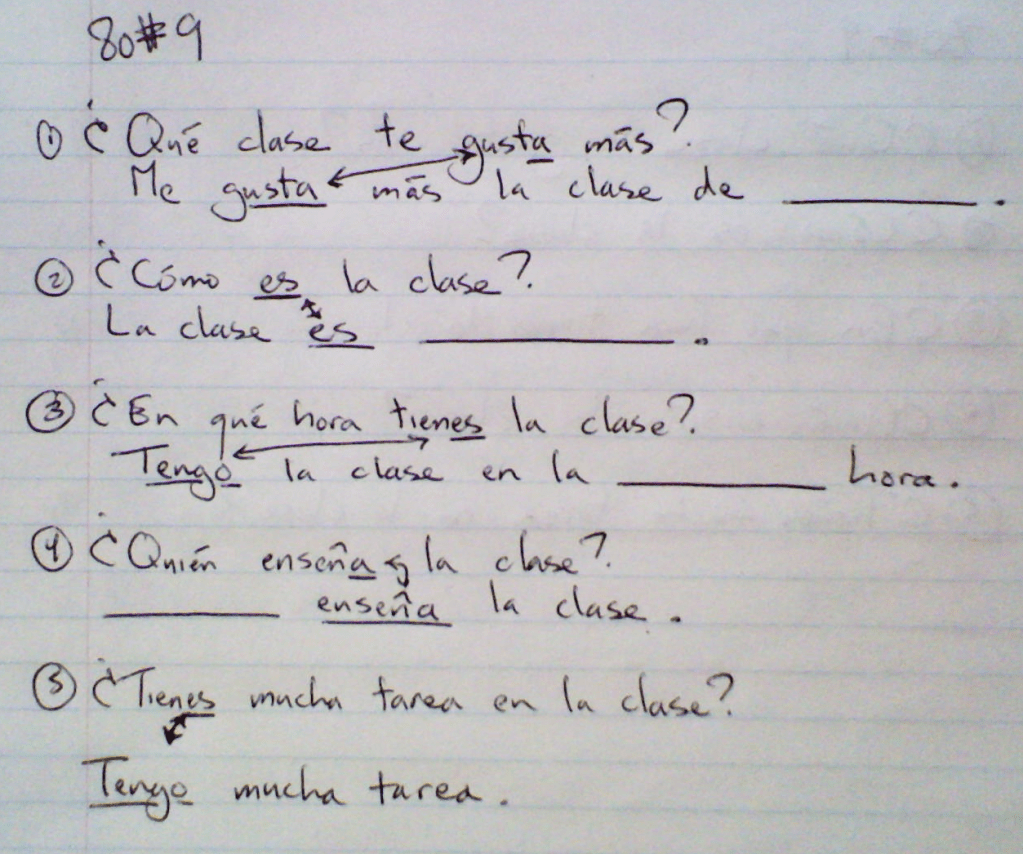 80#9
① ¿Qué clase te gusta más?
Me gusta más la clase de ________.
② ¿Cómo es la clase?
La clase es ________.
③ ¿En qué hora tienes la clase?
Tengo la clase en la ________ hora.
④ ¿Quién enseña la clase?
________ enseña la clase.
⑤ ¿Tienes mucha tarea en la clase?
Tengo mucha tarea.